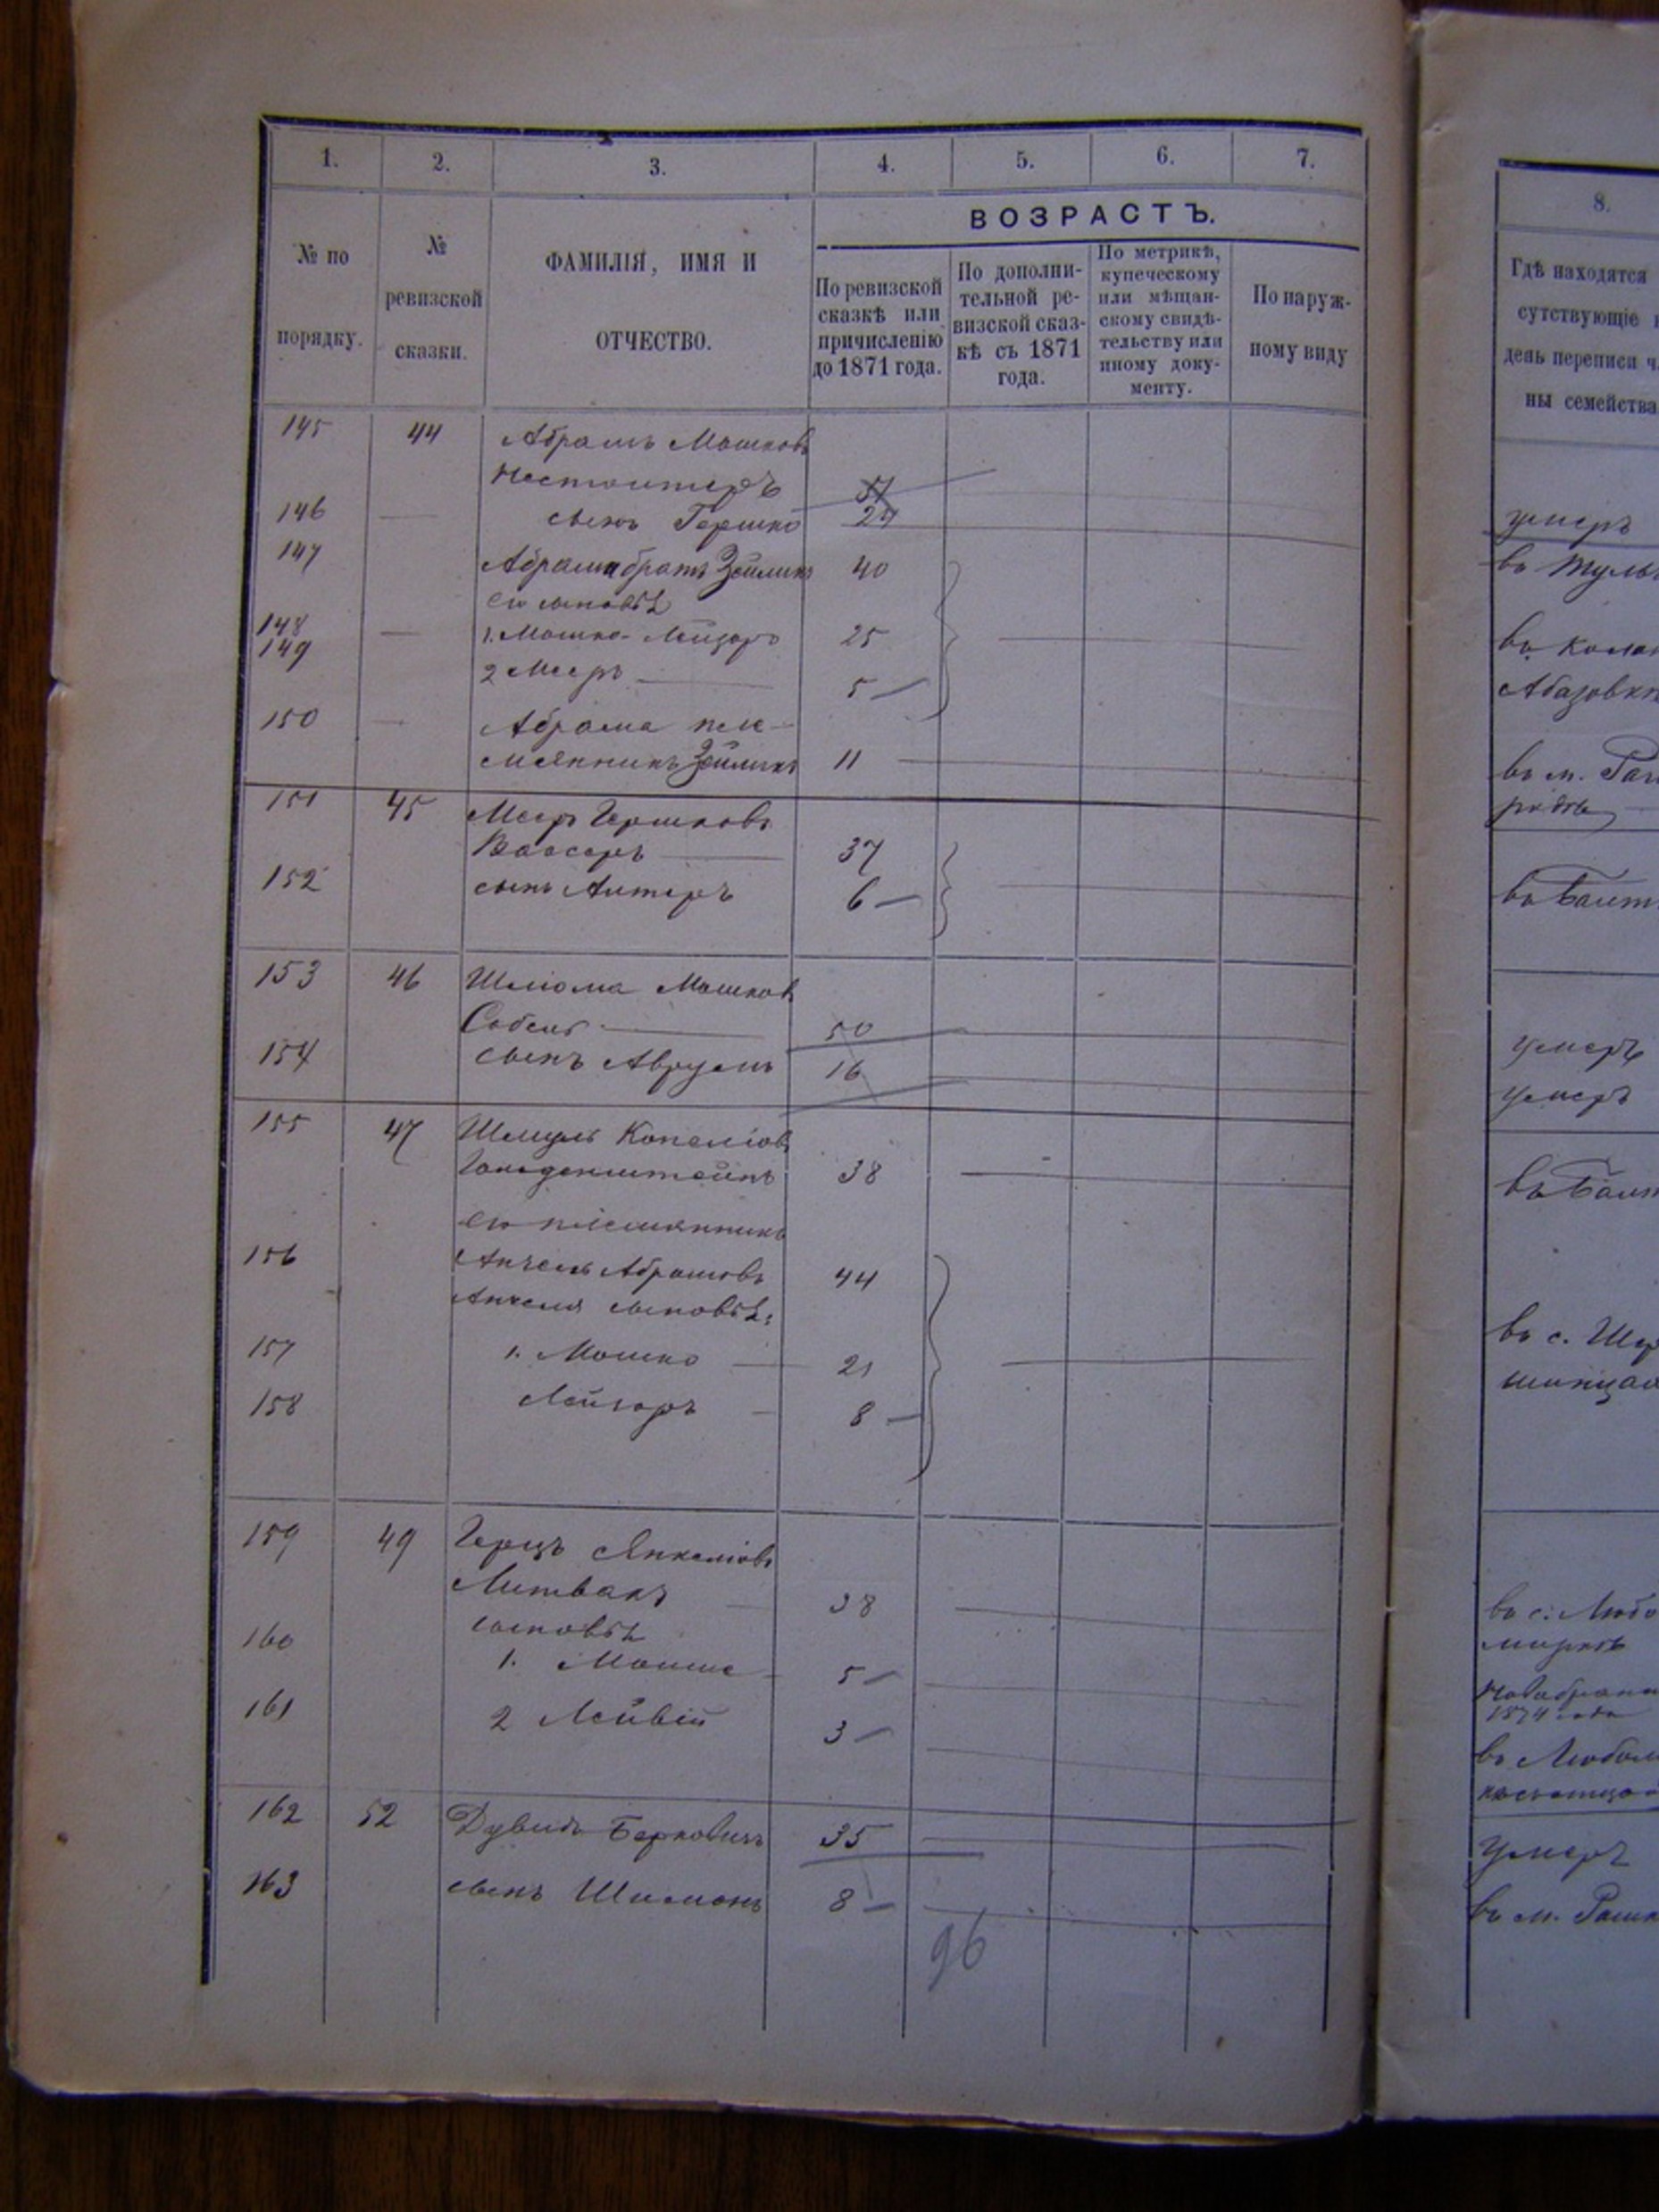 1. 2. 3. 4. 5. 6. 7.
№ по порядку.
№ ревизской сказки.
ФАМИЛІЯ, ИМЯ И ОТЧЕСТВО.
ВОЗРАСТЪ.
По ревизской сказкѣ или причисленію до 1871 года.
По дополнительной ревизской сказкѣ съ 1871 года.
По метрикѣ, купеческому или мѣщанскому свидѣтельству или иному документу.
По наружному виду
145 44 Абрамъ Мошковъ
57
146 — сынъ Гершко 24
147 Абрама братъ Зейликъ 40
его сыновья
148 — 1. Мошко-Лейзоръ 25
149 2 Мееръ — 5 —
150 — Абрама пле-
мянникъ Зейликъ 11
151 45 Мееръ Гершковъ
Вассеръ — 37
152 сынъ Антеръ 6 —
153 46 Шліома Мошков
50
154 сынъ Аврумъ 16
155 47 Шмуль Копеліовъ
Гольденштейнъ 38
его племянникъ
156 Анчель Абрамовъ 44
Анчеля сыновья:
157 1. Мошко — 21
158 Лейзоръ — 8 —
159 49 Герцъ Янкеліовъ
Литвакъ — 38
сыновья
160 1. Мошке 5 —
161 2 Лейвій 3 —
162 52 Дувидъ Берковичъ 35
163 сынъ Шимонъ 8 —
96
8.
Гдѣ находятся
сутствующіе
день переписи ч
ны семейства
умеръ
въ
въ
въ м.
въ Балт
умеръ
умеръ
въ Балт
въ с.
въ с. Любо
миркѣ
1874 года
въ Любом
умеръ
въ м. Рашк